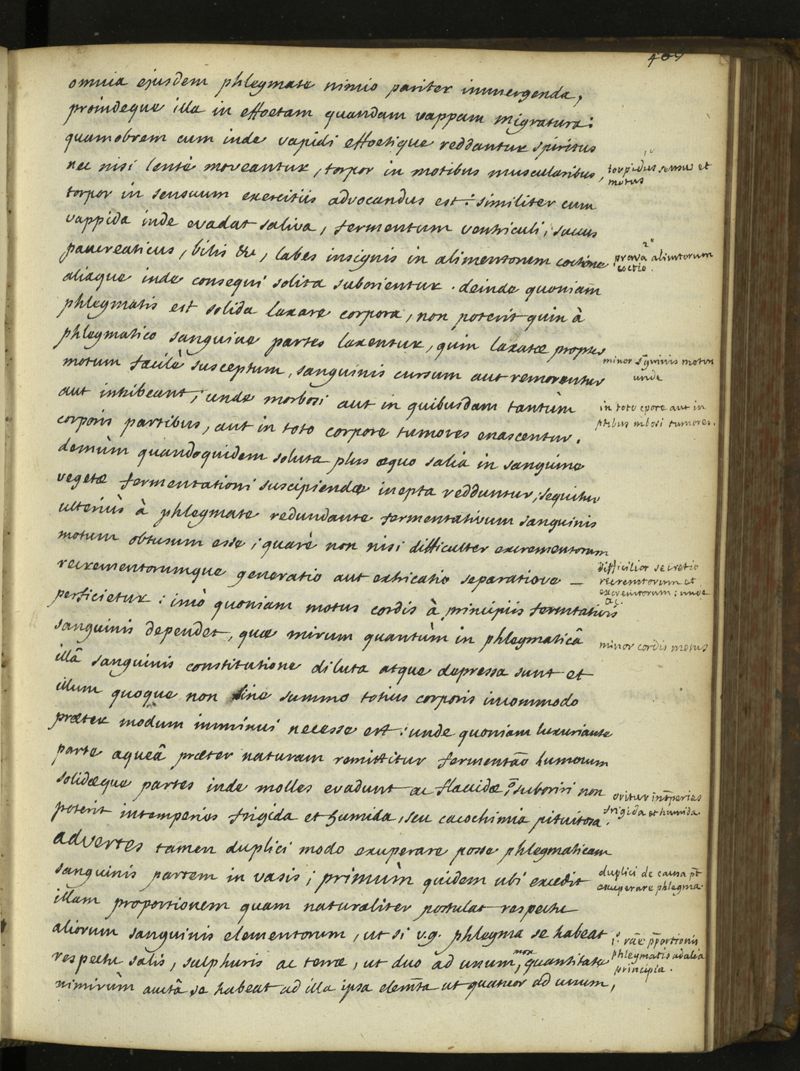 omnia ejusdem phlegmate nimio pariter immergenda,
proindeque illa in effoetam quandam vappam migratura:
quamobrem cum inde vapidi effoetique reddantur spiritus
nec nisi lentè moveantur, torpor in motibus muscularibus,
1º
torpidus sensu et
motus
torpor in sensuum exercitiis advocandus est: similiter cum
vappida inde evadat saliva, fermentum ventriculi, succus
pancreaticus, bilis &c, labes insignis in alimentorum coctione
2º
prava alimtorum
coctio.
aliaque inde consequi solita suborientur. deinde quoniam
phlegmatis est solida laxare corpora, non poterit quin à
phlegmatico sanguine partes laxentur, quin laxatæ propter
minor sguinis motus
unde
motum facilè susceptum, sanguinis cursum aut remorentur
aut inhibeant; unde morbosi aut in quibusdam tantùm
in toto cpore aut in
ptibus mbosi tumores.
corporis partibus, aut in toto corpore tumores enascentur.
demùm quandoquidem soluta plus æquo salia in sanguine
vegetæ fermentationi suscipiendæ inepta redduntur, sequitur
ulteriùs à phlegmate redundante fermentativum sanguinis
motum obtusum esse; quarè non nisi difficulter excrementorum
difficilior secretio
recremtorum et
excremtorum: unde
recrementorumque generatio aut extricatio separatione —
perficietur: imò quoniam motus cordis à principiis fermtativis
sanguinis dependet, quæ mirum quantùm in phlegmaticâ
minor cordis motus
illâ sanguinis constitutione diluta atque depressa sunt et
illum quoque non sine summo totius corporis incommodo
præter modum imminui necesse est: unde quoniam luxuriante
parte aqueâ præter naturam remittitur fermentāo humorum
solidæque partes inde molles evadunt ac flaccidæ, suboriri non
oritur intperies
frigida et humida.
poterit intemperies frigida et humida, seu cacochimia pituitosa.
advertes tamen duplici modo exuperare posse phlegmaticam
sanguinis partem in vasis; primùm quidem ubi excedit
duplici de causa pt
exuperare phlegma.
illam proportionem quam naturaliter postulat respectu
aliorum sanguinis elementorum, ut si v.g. phlegma se habeat
1º rāe pportionis
phlegmatis ad alia
principia.
respectu salis, sulphuris ac terræ, ut duo ad unum, mox quantitate
nimirùm auctâ se habeat ad illa ipsa elemta ut quatuor ad unum,